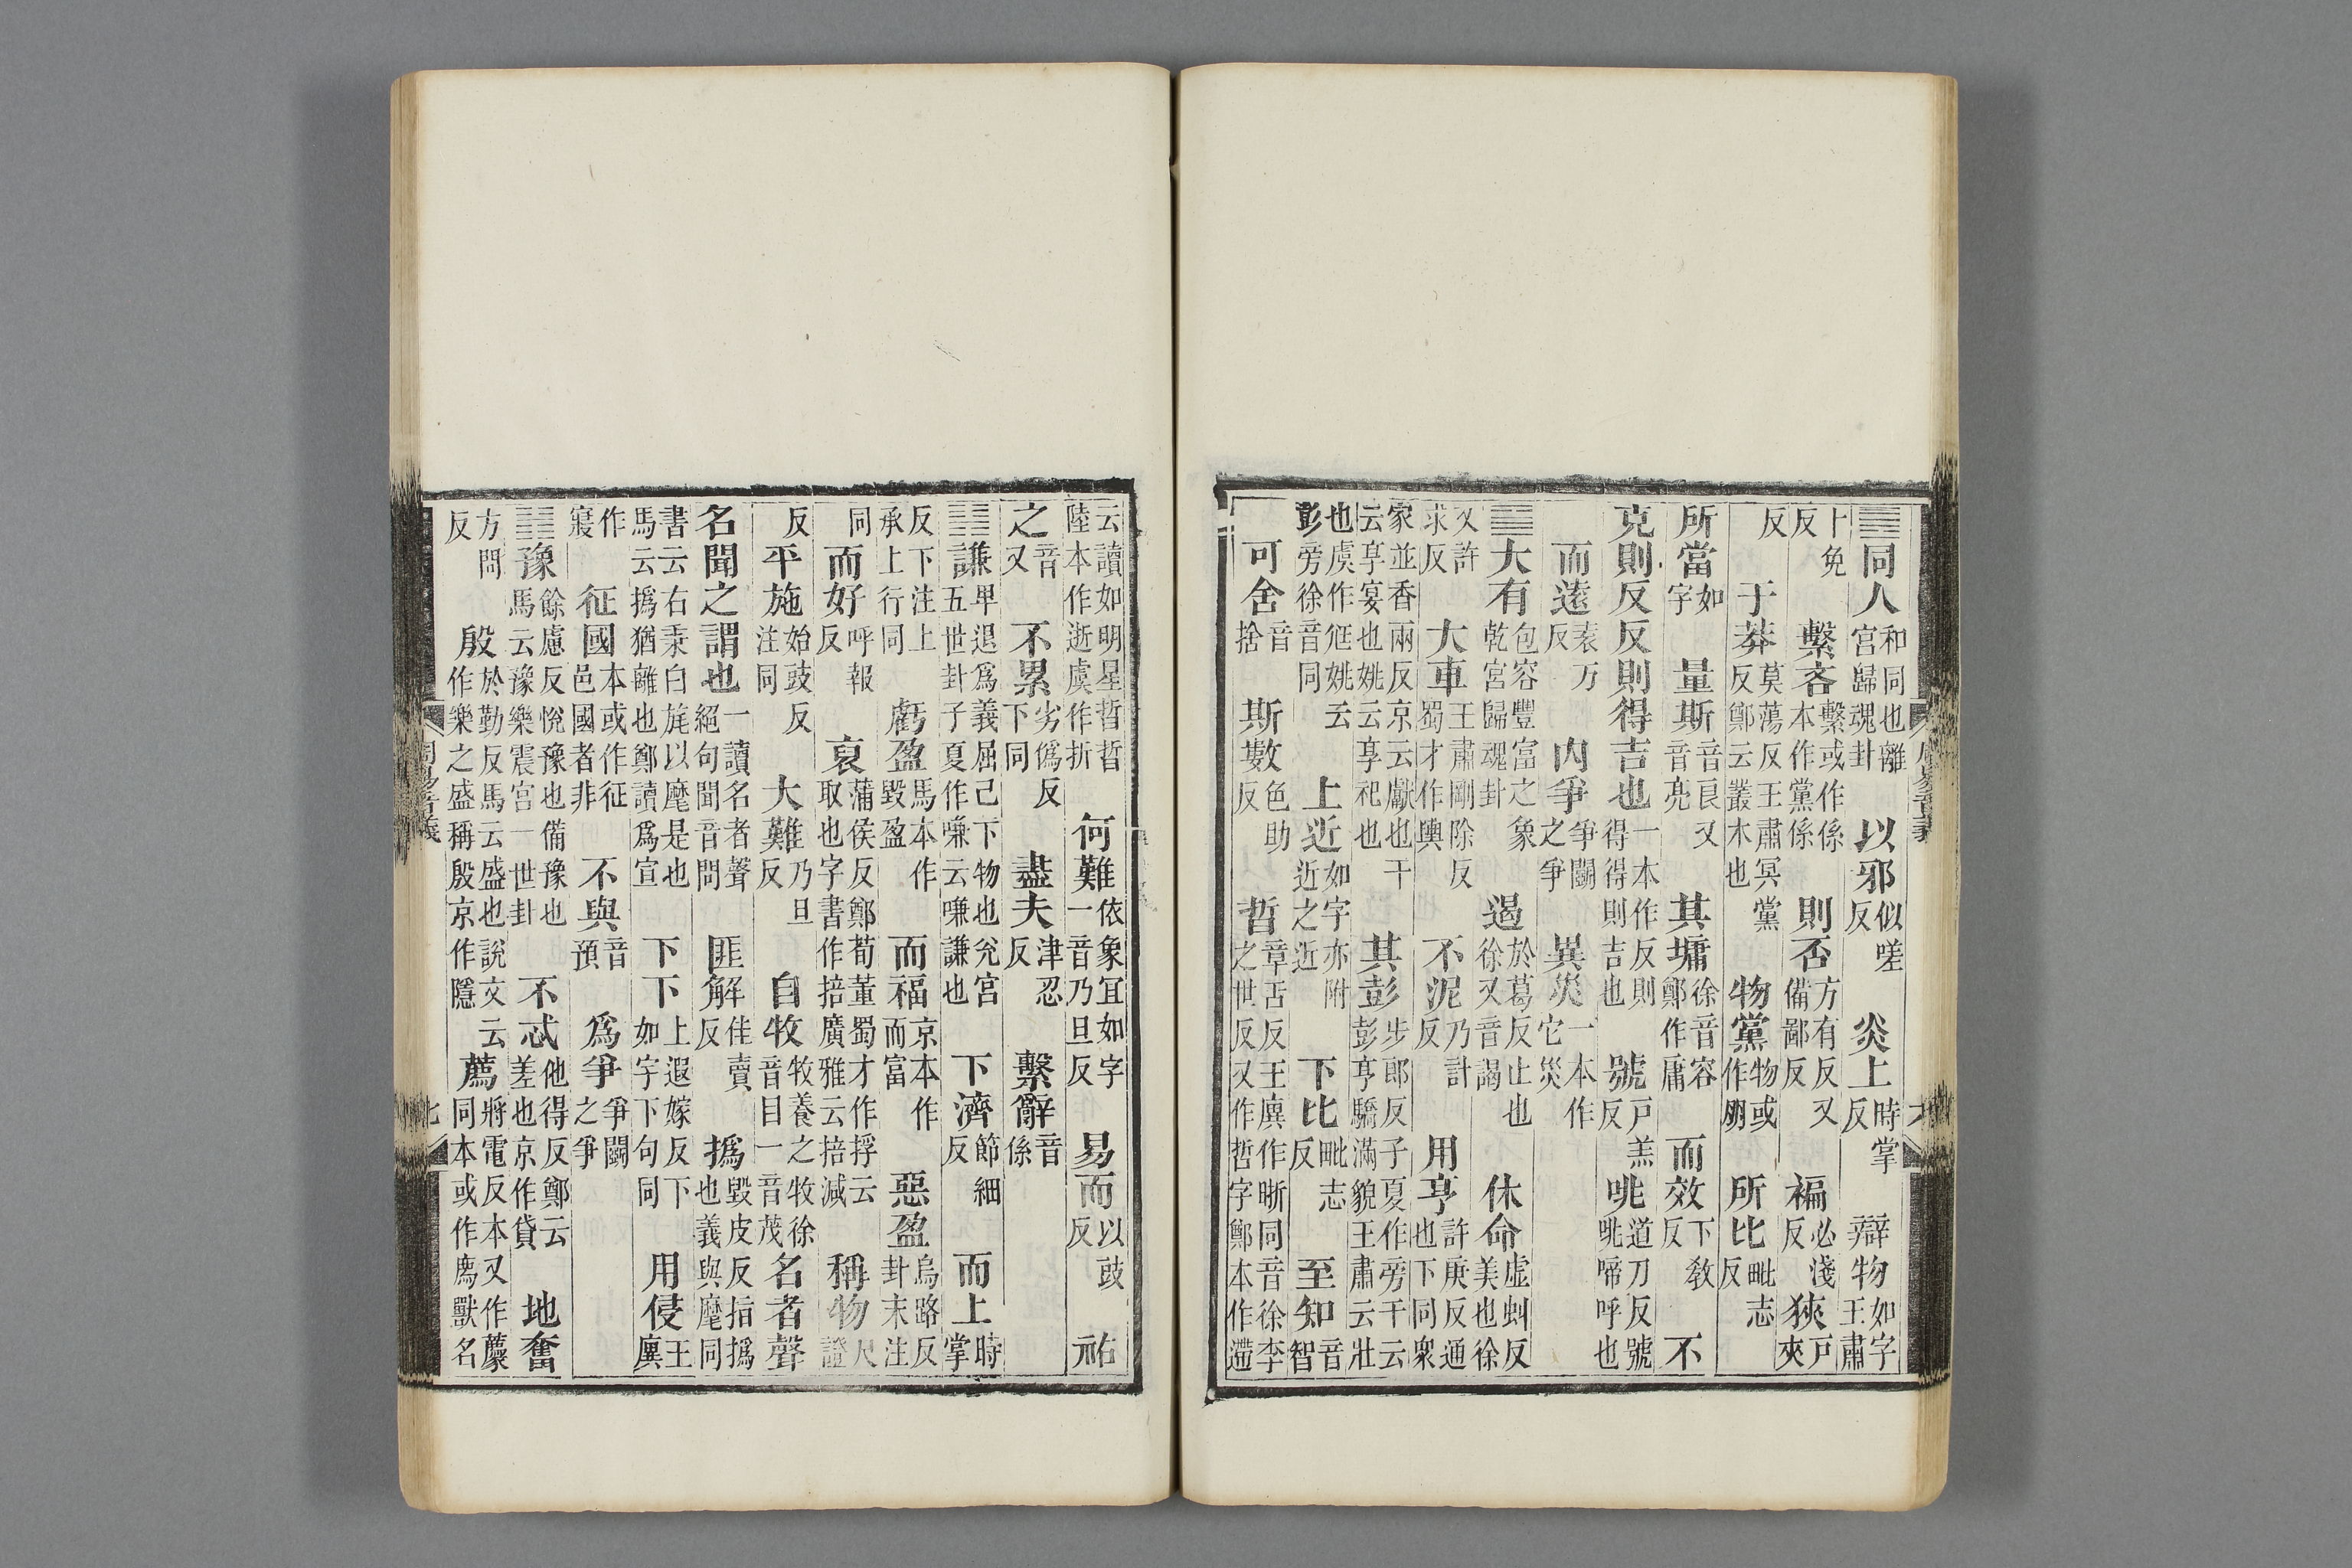 ䷌同人和同也離宮歸魂卦以邪似嗟反炎上時掌反辯物如字王肅
卜免反繫吝繫或作係本作黨係則否方有反又備鄙反褊必淺反狹戶夾
反于莽莫蕩反王肅冥黨反鄭云叢木也物黨物或作朋所比毗志反
所當如字量斯音良又音亮其墉徐音容鄭作庸而效下教反不
克則反反則得吉也一本作反則得得則吉也號戶羔反咷道刀反號咷啼呼也
而遠袁万反內爭爭鬭之爭異災一本作它災
䷍大有包容豐富之象乾宮歸魂卦遏於葛反止也徐又音謁休命虛虯反美也徐
又許求反大車王肅剛除反蜀才作輿不泥乃計反用亨許庚反通也下同衆
家並香兩反京云獻也干云亨宴也姚云亨祀也其彭步郎反子夏作旁干云彭亨驕滿貌王肅云壯
也虞作尫姚云彭旁徐音同上近如字亦附近之近下比毗志反至知音智
可舍音捨斯數色助反晢章舌反王廙作晣同音徐李之世反又作哲字鄭本作遰
周易音義
六
云讀如明星晢晢陸本作逝虞作折何難依象宜如字一音乃旦反易而以豉反祐
之音又不累劣僞反下同盡夫津忍反繫辭音係
䷎謙卑退爲義屈己下物也兌宮五世卦子夏作嗛云嗛謙也下濟節細反而上時掌
反下注上承上行同虧盈馬本作毀盈而福京本作而富惡盈烏路反卦末注
同而好呼報反裒蒲侯反鄭荀董蜀才作捊云取也字書作掊廣雅云掊減稱物尺證
反平施始豉反注同大難乃旦反自牧牧養之牧徐音目一音茂名者聲
名聞之謂也一讀名者聲絕句聞音問匪解佳賣反撝毀皮反指撝也義與麾同
書云右秉白旄以麾是也馬云撝猶離也鄭讀爲宣下下上遐嫁反下如字下句同用侵王廙
作寑征國本或作征邑國者非不與音預爲爭爭鬭之爭
䷏豫餘慮反悅豫也備豫也馬云豫樂震宮一世卦不忒他得反鄭云差也京作貸地奮
方問反殷於勤反馬云盛也說文云作樂之盛稱殷京作隱薦將電反本又作䕪同本或作廌獸名
周易音義
七